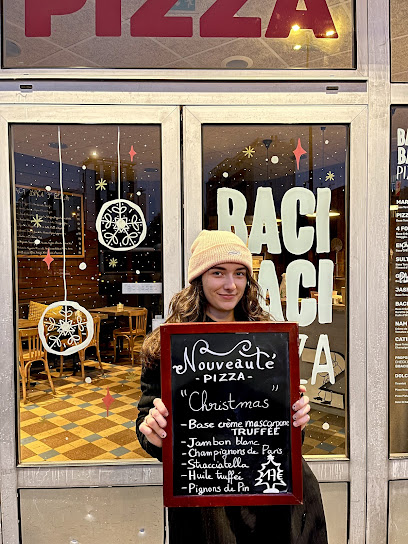 PIZZA
BACI
BACI
PIZZA
BACI
Nouveauté
- PIZZA -
"Christmas"
- Base crème mascarpone
TRUFFÉE
- Jambon blanc
- Champignons de Paris
- Stracciatella
- Huile truffée
- Pignons de Pin